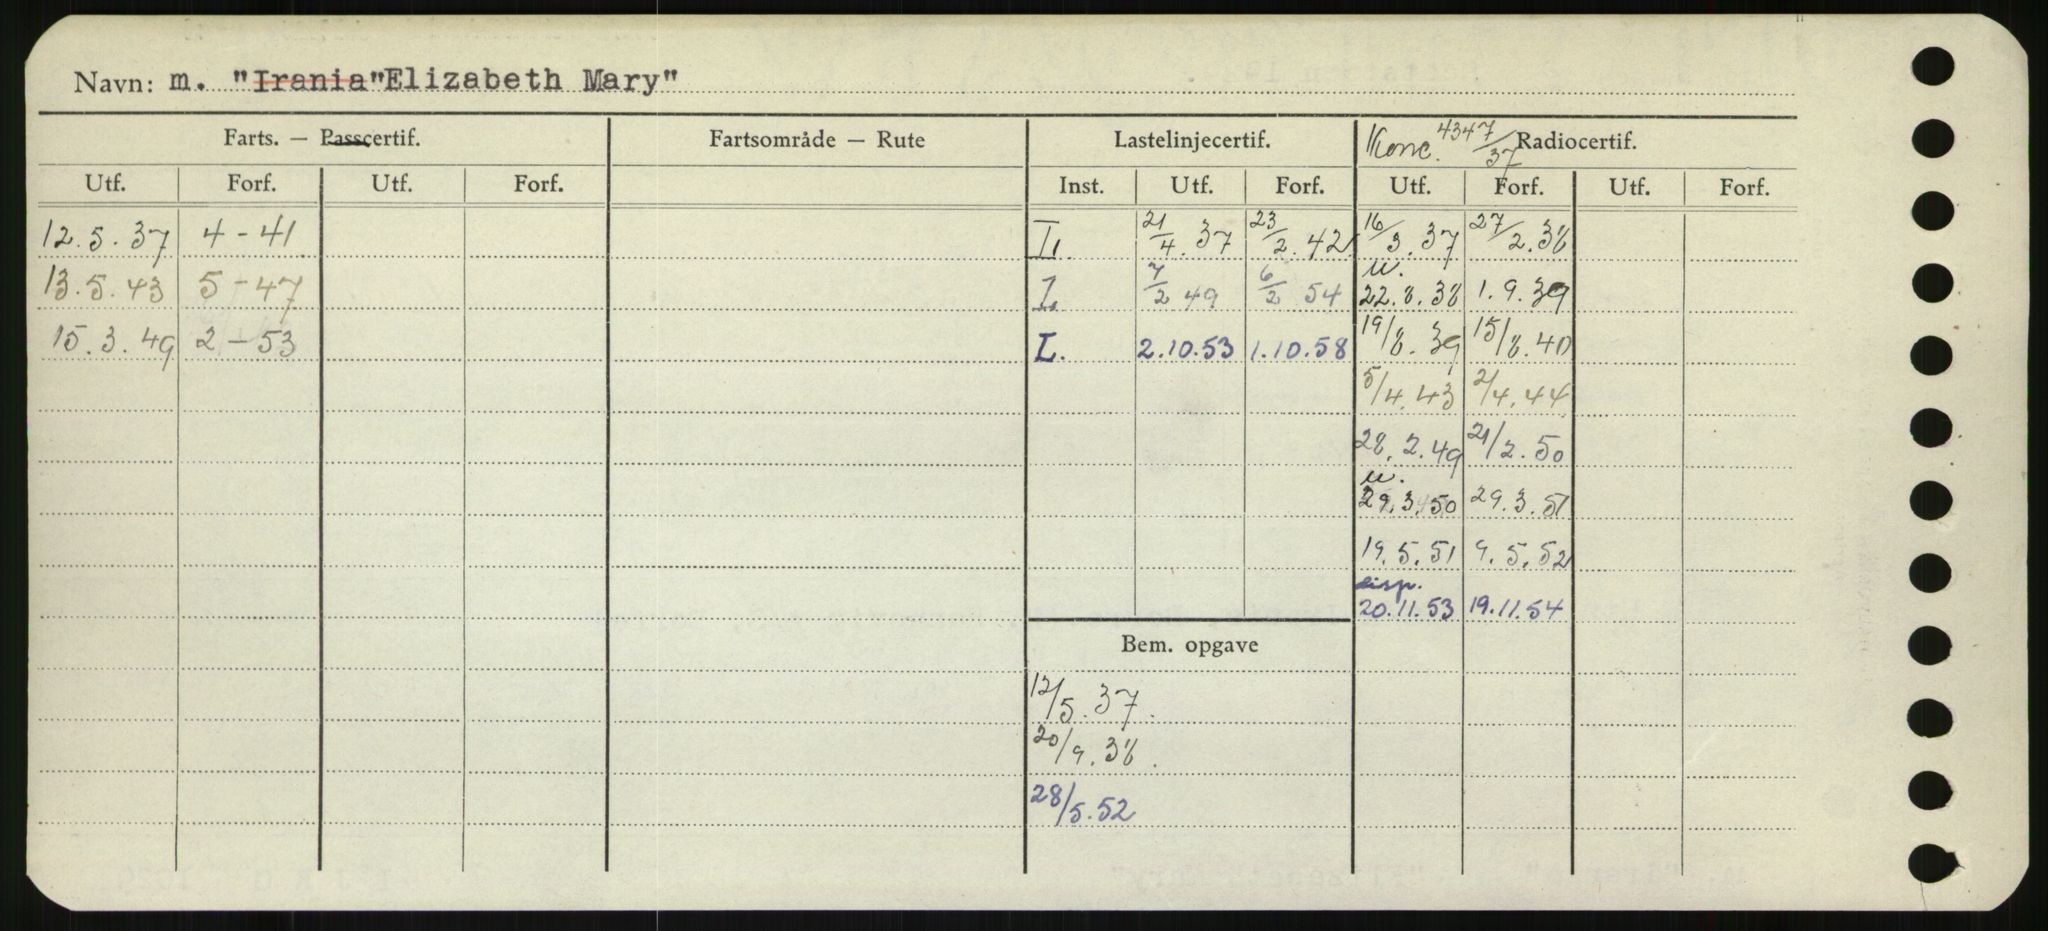 Navn: m. "Irania" Elizabeth Mary"
Farts. — Passcertif. Fartsområde — Rute Lastelinjecertif. Konc. 4347/37 Radiocertif.
Utf. Forf. Utf. Forf. Inst. Utf. Forf. Utf. Forf. Utf. Forf.
12.5.37 4-41 I. 21/4.37 23/2.42 16/3.37 27/2.38
13.5.43 5-47 I. 7/2 49 6/2 54 u. 22.8.38 1.9.39
15.3.49 2-53 L. 2.10.53 1.10.58 19/8.39 15/8.40
5/4.43 2/4.44
28.2.49 21/2.50
u.
29.3.50 29.3.51
19.5.51 9.5.52
disp.
20.11.53 19.11.54
Bem. opgave
12/5.37.
20/9.38.
28/5.52